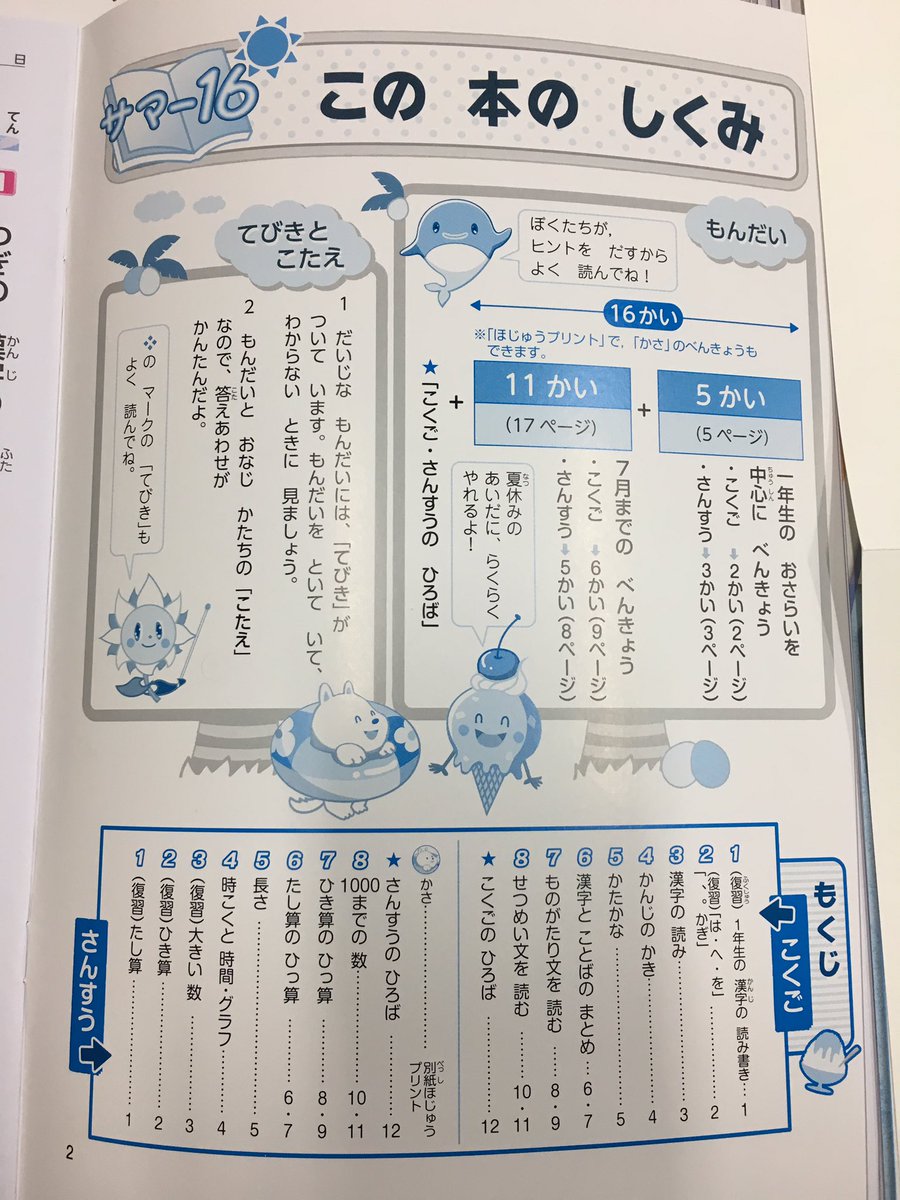 サマー16
この 本の しくみ
もんだい
ぼくたちが,
ヒントを だすから
よく 読んでね!
16かい
※「ほじゅうプリント」で,「かさ」のべんきょうも
できます。
5かい
(5ページ)
+
11かい
(17ページ)
+
一年生の おさらいを
中心に べんきょう
ちゅうしん
・こくご➡2かい(2ページ)
・さんすう➡3かい(3ページ)
7月までの べんきょう
・こくご ➡6かい(9ページ)
・さんすう➡5かい(8ページ)
★「こくご・さんすうの ひろば」
夏休みの
なつ
あいだに、らくらく
やれるよ!
てびきと
こたえ
1 だいじな もんだいには、「てびき」が
ついて います。もんだいを といて いて、
わからない ときに 見ましょう。
2 もんだいと おなじ かたちの「こたえ」
なので、答えあわせが
こた
かんたんだよ。
❖の マークの「てびき」も
よく 読んでね。
もくじ
こくご
1 (復習)1年生の 漢字の 読み書き…… 1
ふくしゅう
かんじ
2 (復習)「は・へ・を」
「、。かぎ」…… 2
3 漢字の 読み…… 3
4 かんじの かき…… 4
5 かたかな…… 5
6 漢字と ことばの まとめ… 6・7
7 ものがたり文を 読む…… 8・9
8 せつめい文を 読む…… 10・11
★ こくごの ひろば…… 12
さんすう
1 (復習)たし算…… 1
2 (復習)ひき算…… 2
3 (復習)大きい 数…… 3
4 時こくと 時間・グラフ…… 4
5 長さ…… 5
6 たし算の ひっ算…… 6・7
7 ひき算の ひっ算…… 8・9
8 1000までの 数…… 10・11
★ さんすうの ひろば…… 12
かさ…… 別紙ほじゅう
べっし
プリント
2
日
てん
つぎの
かんじ
ふた